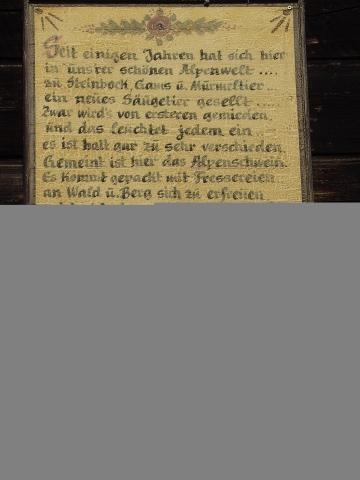 Seit einigen Jahren hat sich hier
in uns'rer schönen Alpenwelt ....
zu Steinbock, Gams u. Murmeltier...
ein neues Säugetier gesellt .....
Zwar wird's von ersteren gemieden,
und das leuchtet jedem ein
es ist halt gar zu sehr verschieden.
Gemeint ist hier das Alpenschwein.
Es kommt gepackt mit Fressereien
an Wald u. Berg sich zu erfreuen